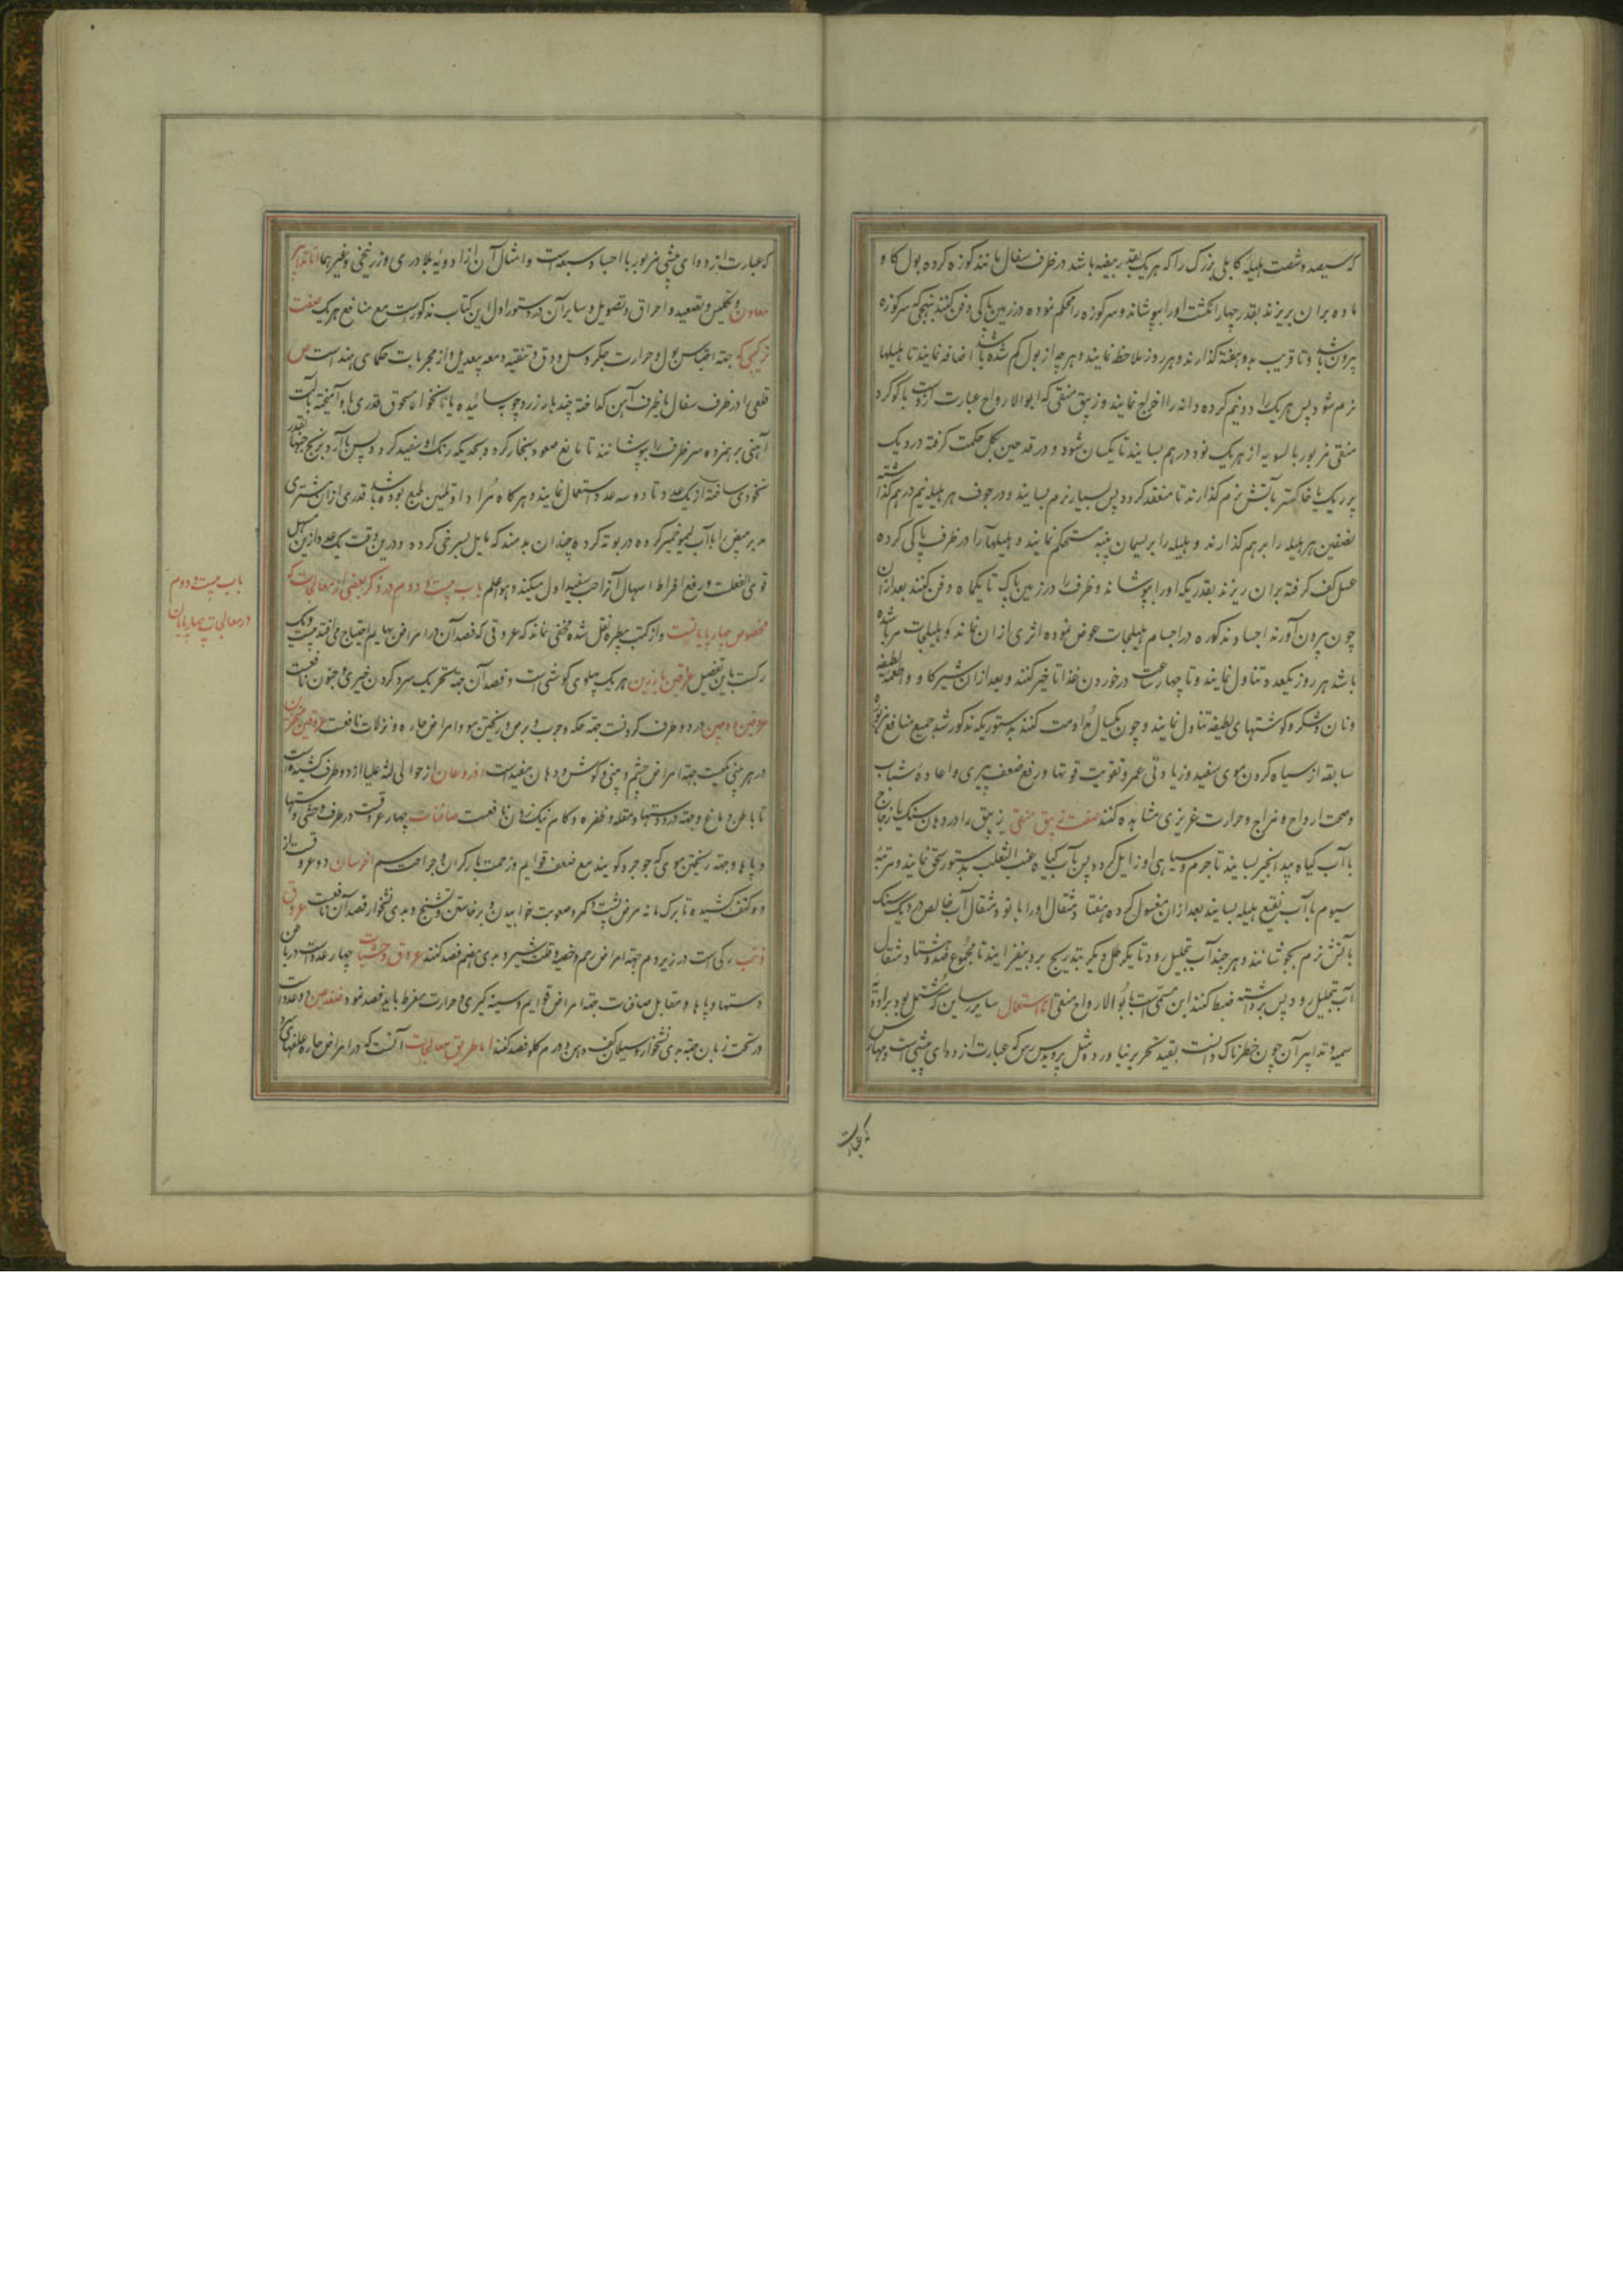 که سیصد و شصت هلیله کابلی بزرگ را که هر یک بقدر بیضه باشد در ظرف سفال مانند کوزه کرده بول کاو
ماده بران بریزند بقدر چهار انکشت اورا بپوشاند و سر کوزه را محکم نموده در زمین پاکی دفن کنند بنهجی که سر کوزه
بیرون باشد و تا قریب بدو هفته کذارند و هر روز ملاحظه نمایند و هر چه از بول کم شده باشد اضافه نمایند تا هلیلها
نرم شود پس هر یک را دو نیم کرده دانه را اخراج نمایند و زیبق منقی که ابوالارواح عبارت از اوست با کوکرد
منقی مزبور بالسویه از هر یک نود درهم بسایند تا یکسان شود و در قدحین بکل حکمت کرفته در دیک
پر ریک یا خاکستر بآتش نرم کذارند تا منعقد کردد پس بسیار نرم بسایند و در جوف هر هلیله نیم درهم کذاشته
نصفین هر هلیله را بر هم کذارند و هلیله را بریسمان پنبه مستحکم نمایند و هلیلها را در ظرف پاکی کرده
عسل کف کرفته بران ریزند بقدریکه اورا بپوشاند و ظرف را در زمین پاک تا یکماه دفن کنند بعد ازان
چون بیرون آورند اجساد مذکوره در اجسام هلیلجات غوص نموده اثری ازان نماند و هلیلجات مرباشده
باشد هر روز یکعدد تناول نمایند و تا چهار ساعت در خوردن غذا تاخیر کنند و بعد ازان شیر کاو و اطعمه لطیفه
و نان و شکر و کوشتهای لطیفه تناول نمایند و چون یکسال مداومت کنند بدستوریکه مذکور شد جمیع منافع مزبوره
سابقه از سیاه کردن موی سفید و زیادتی عمر و تقویت قوتها و رفع ضعف پیری و اعاده شباب
و صحت ارواح و مزاج و حرارت غریزی مشاهده کنند صفت زیبق منقی زیبق را در دهان سنک یا زجاج
با آب کیاه بید انجیر بسایند تا جرم و سیاهی او زایل کردد پس بآب کیاه عنب الثعلب بدستور سحق نمایند و مرتبه
سیوم با آب نقیع هلیله بسایند بعد ازان مغسول کرده هفتاد مثقال اورا با نود مثقال آب خالص در دیک سنک
بآتش نرم بجوشانند و هر چند آب بتحلیل رود تا یکرطل دیکر بتدریج برو بیفزایند تا مجموع صد و هشتاد مثقال
آب بتحلیل رود پس برداشته ضبط کنند این مسمی است بابوالارواح منقی اما استعمال سایر رساین که مشتمل بود بر ادویه
سمیه و تدابیر آن چون خطرناک دانست بقید تحریر نیاورد مثل پرویدس رس که عبارت از دوای میشی است و مهارس
که عبارت
که عبارت از دوای میشی مزبور با اجساد سبعه است و امثال آن از ادویه بلادری و زرنیخی و غیرهما اما تدابیر
معادن و تکلیس و تصعید و احراق و تصویل و سایر آن در دستور اول این کتاب مذکور است مع منافع هر یک صفت
ترکیبی که جهة احتباس بول و حرارت جکر و سل و دق و تنقیه معده بیعدیل و از مجربات حکمای هند است ص
قلعی را در ظرف سفال یا ظرف آهن کداخته چند بار زردچوبه سائیده یا نانخواه مسحوق قدری با او آمیخته بآلت
آهنی بر همزده سر ظرف را بپوشانند تا مانع صعود بخار کردد بحدیکه رنک او سفید کردد پس با آرد برنج حبها بقدر
نخودی ساخته از یک عدد تا دو سه عدد استعمال نمایند و هر کاه مراد او تلیین طبع بوده باشد قدری ازان شتری
مدبر مبیض را با آب لیمو خمیر کرده در بوته کرده چندان بدمند که مایل بسرخی کردد و درین وقت یک عدد ازین مسهل
قوی الفعلست و رفع افراط اسهال آنرا حب سفید اول میکند و هو اعلم باب بیست و دوم در ذکر بعضی از معالجات که
مخصوص چهارپایانست و از کتب بیطره نقل شده مخفی نماند که عروقی که فصد آن در امراض بهایم احتیاج می افتد بیست و یک
رکست باین تفصیل عرقین بارزین هر یک پهلوی کوشی است و فصد آن جهة تحریک سر کردن خیری و جنون نافعست
عرقین ودجین در دو طرف کردنست جهة حکه و جرب و برص و ریختن مو و امراض حاره و نزلات نافعست عرقین منخرین
در هر بینی یکیست جهة امراض چشم و بینی و کوش و دهان مفیدست اذرعان از حوالی لثه علیا از دو طرف کشیده است
تا باطن دماغ و جهة درد دستها و مقله و ظفره و کام نیک زدن نافعست صافنات چهار عرقست در طرف وحشی دستها
و پاها و جهة ریختن موی که جوجره کویند مع ضعف قوایم و زحمت بار کران و جراحت سم اخرسان دو عرقست از
دو کتف کشیده تا برک مانه مرض پشت و کمر و صعوبت خوابیدن و برخاستن و تشنج و بدی نشخوار فصد آن نافعست عروق
ذنب رکی است در زیر دم جهة امراض رحم و خصیه و قلت شیر و بدی هضم فصد کنند عروق وحشیات چهار عدد است در باطن
دستها و پاها و مقابل صافنات جهة امراض قوایم و سینه کیری و حرارت مفرط باید فصد نمود ضفدعین دو عدد است
در تحت زبان جهة بدی نشخوار و سیلان کف دهن و ورم کلو فصد کنند اما طریق معالجات آنست که در امراض حاره علفهای سرد
باب بیست و دوم
در معالجات چهارپایان